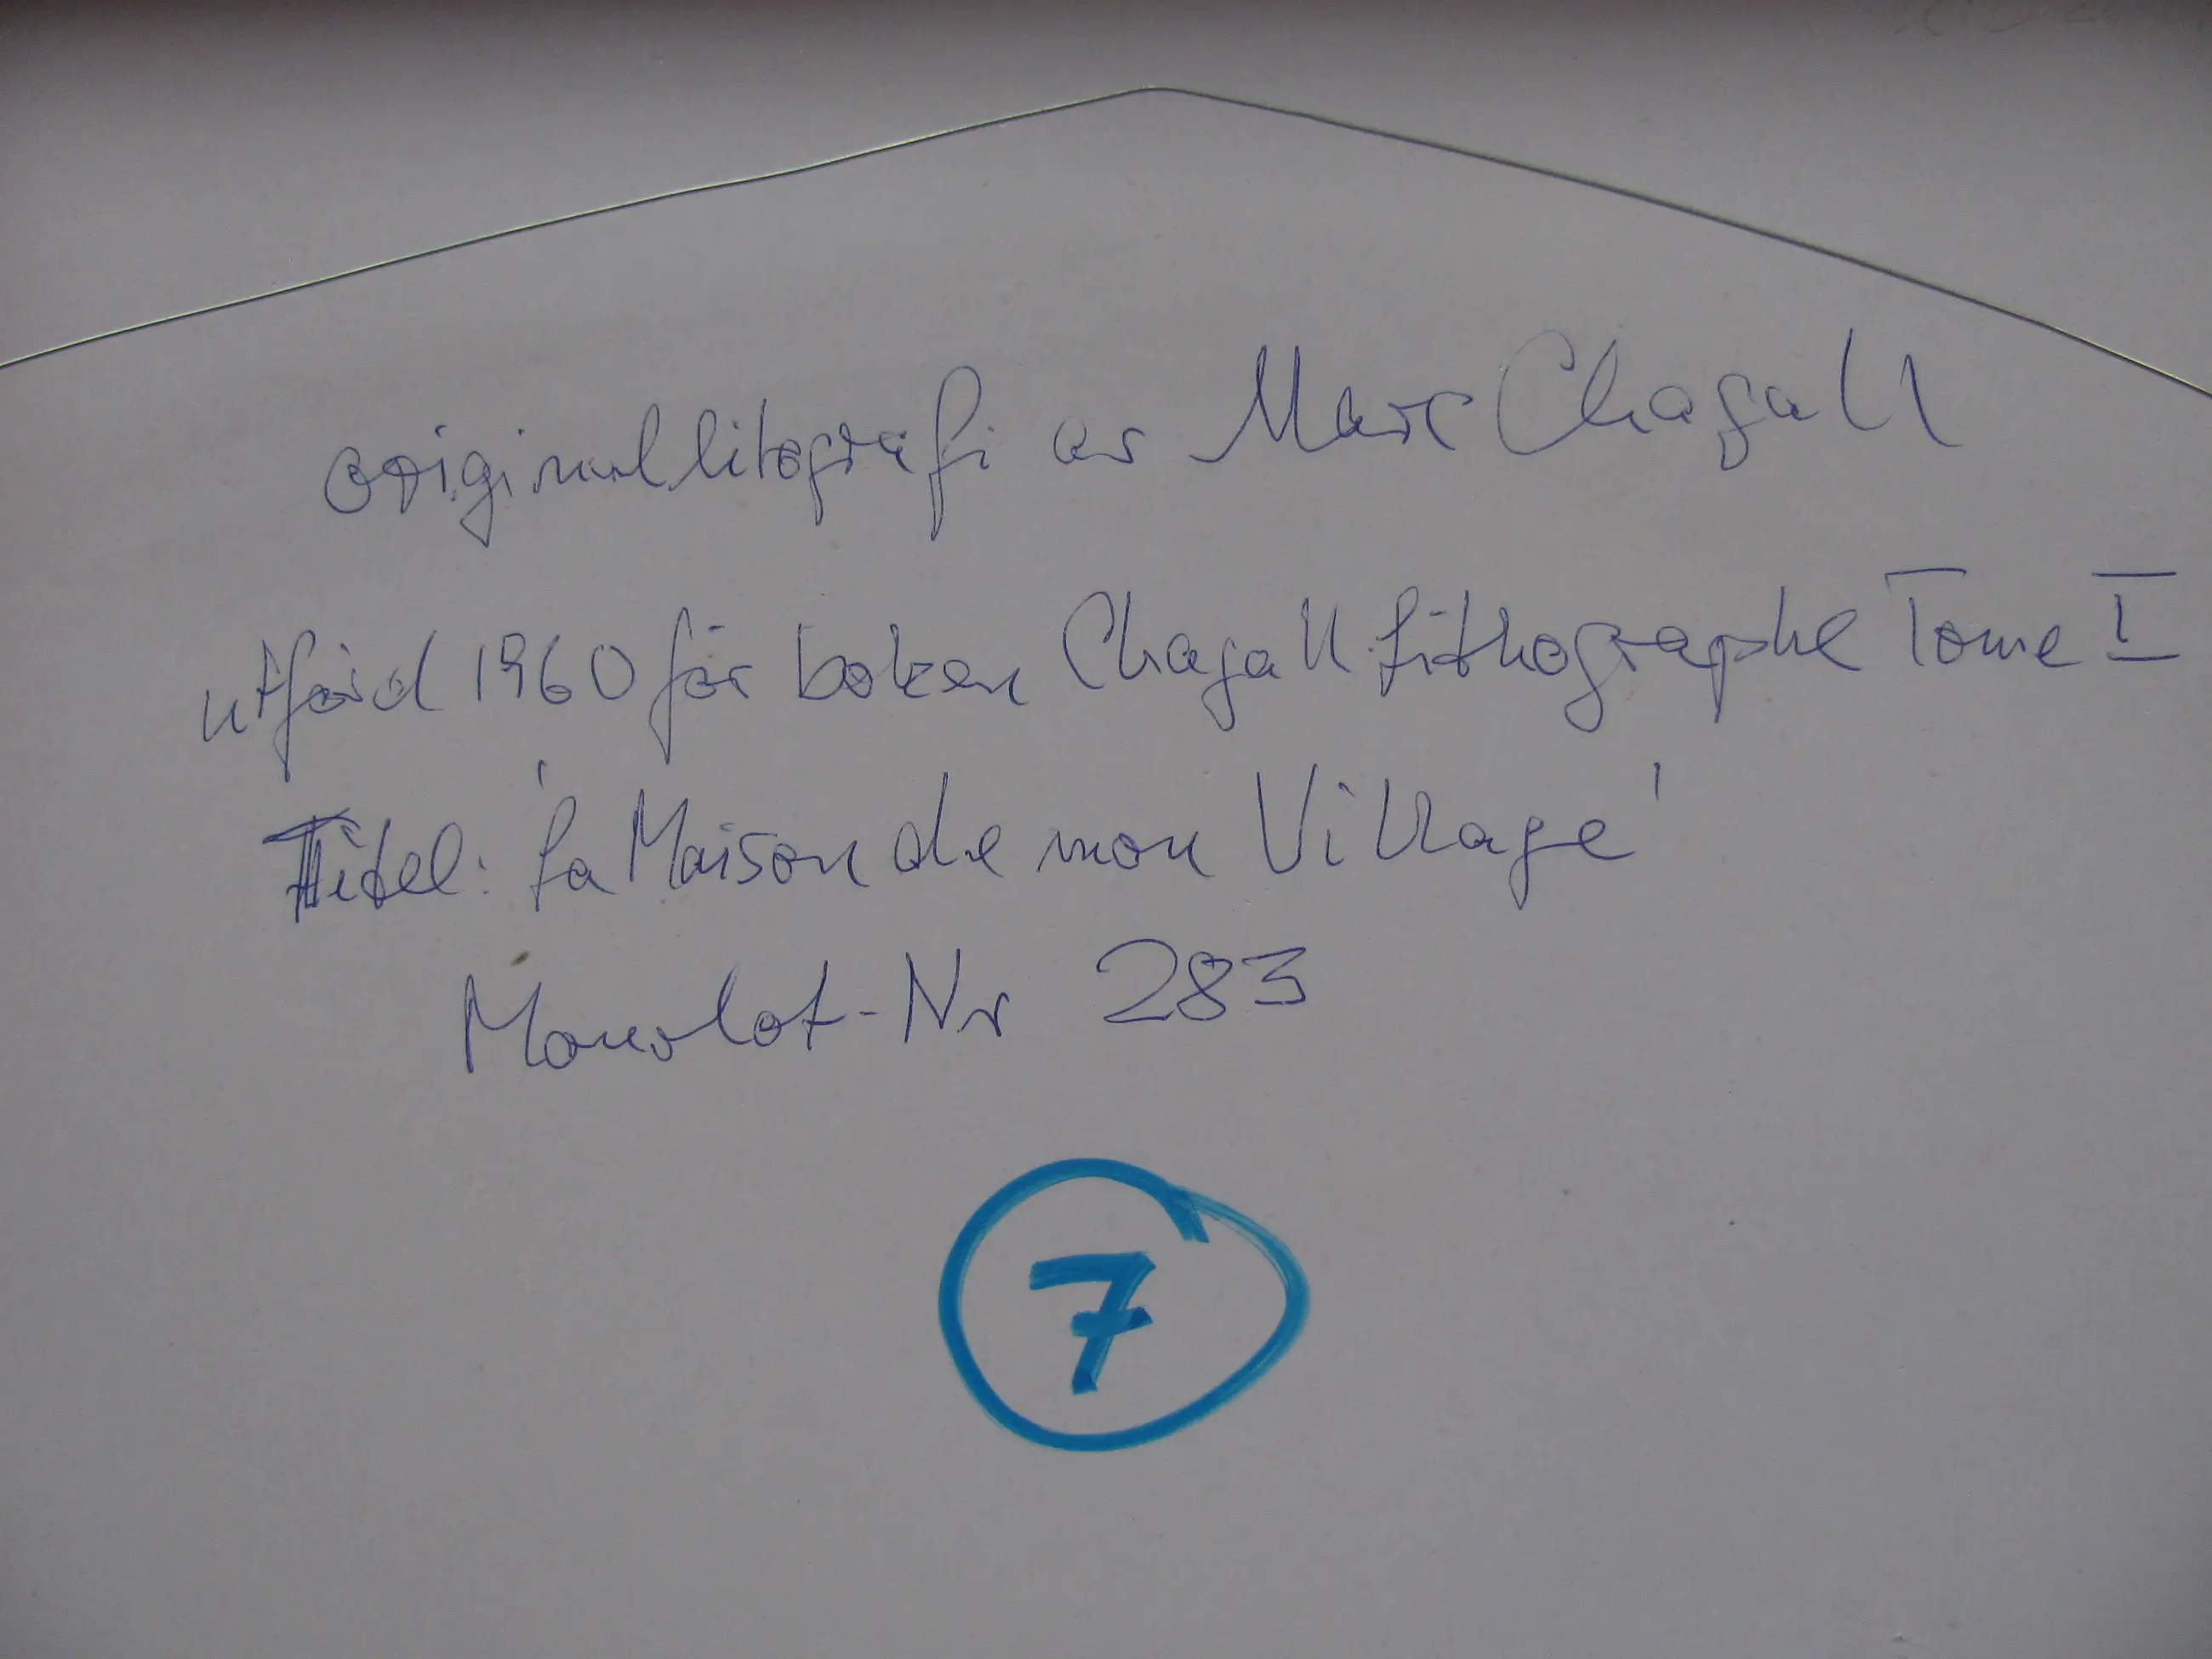 originallitografi av Marc Chagall
utförd 1960 för boken Chagall Lithographe Tome I
Titel: 'La Maison de mon Village'
Mourlot-Nr 283
7